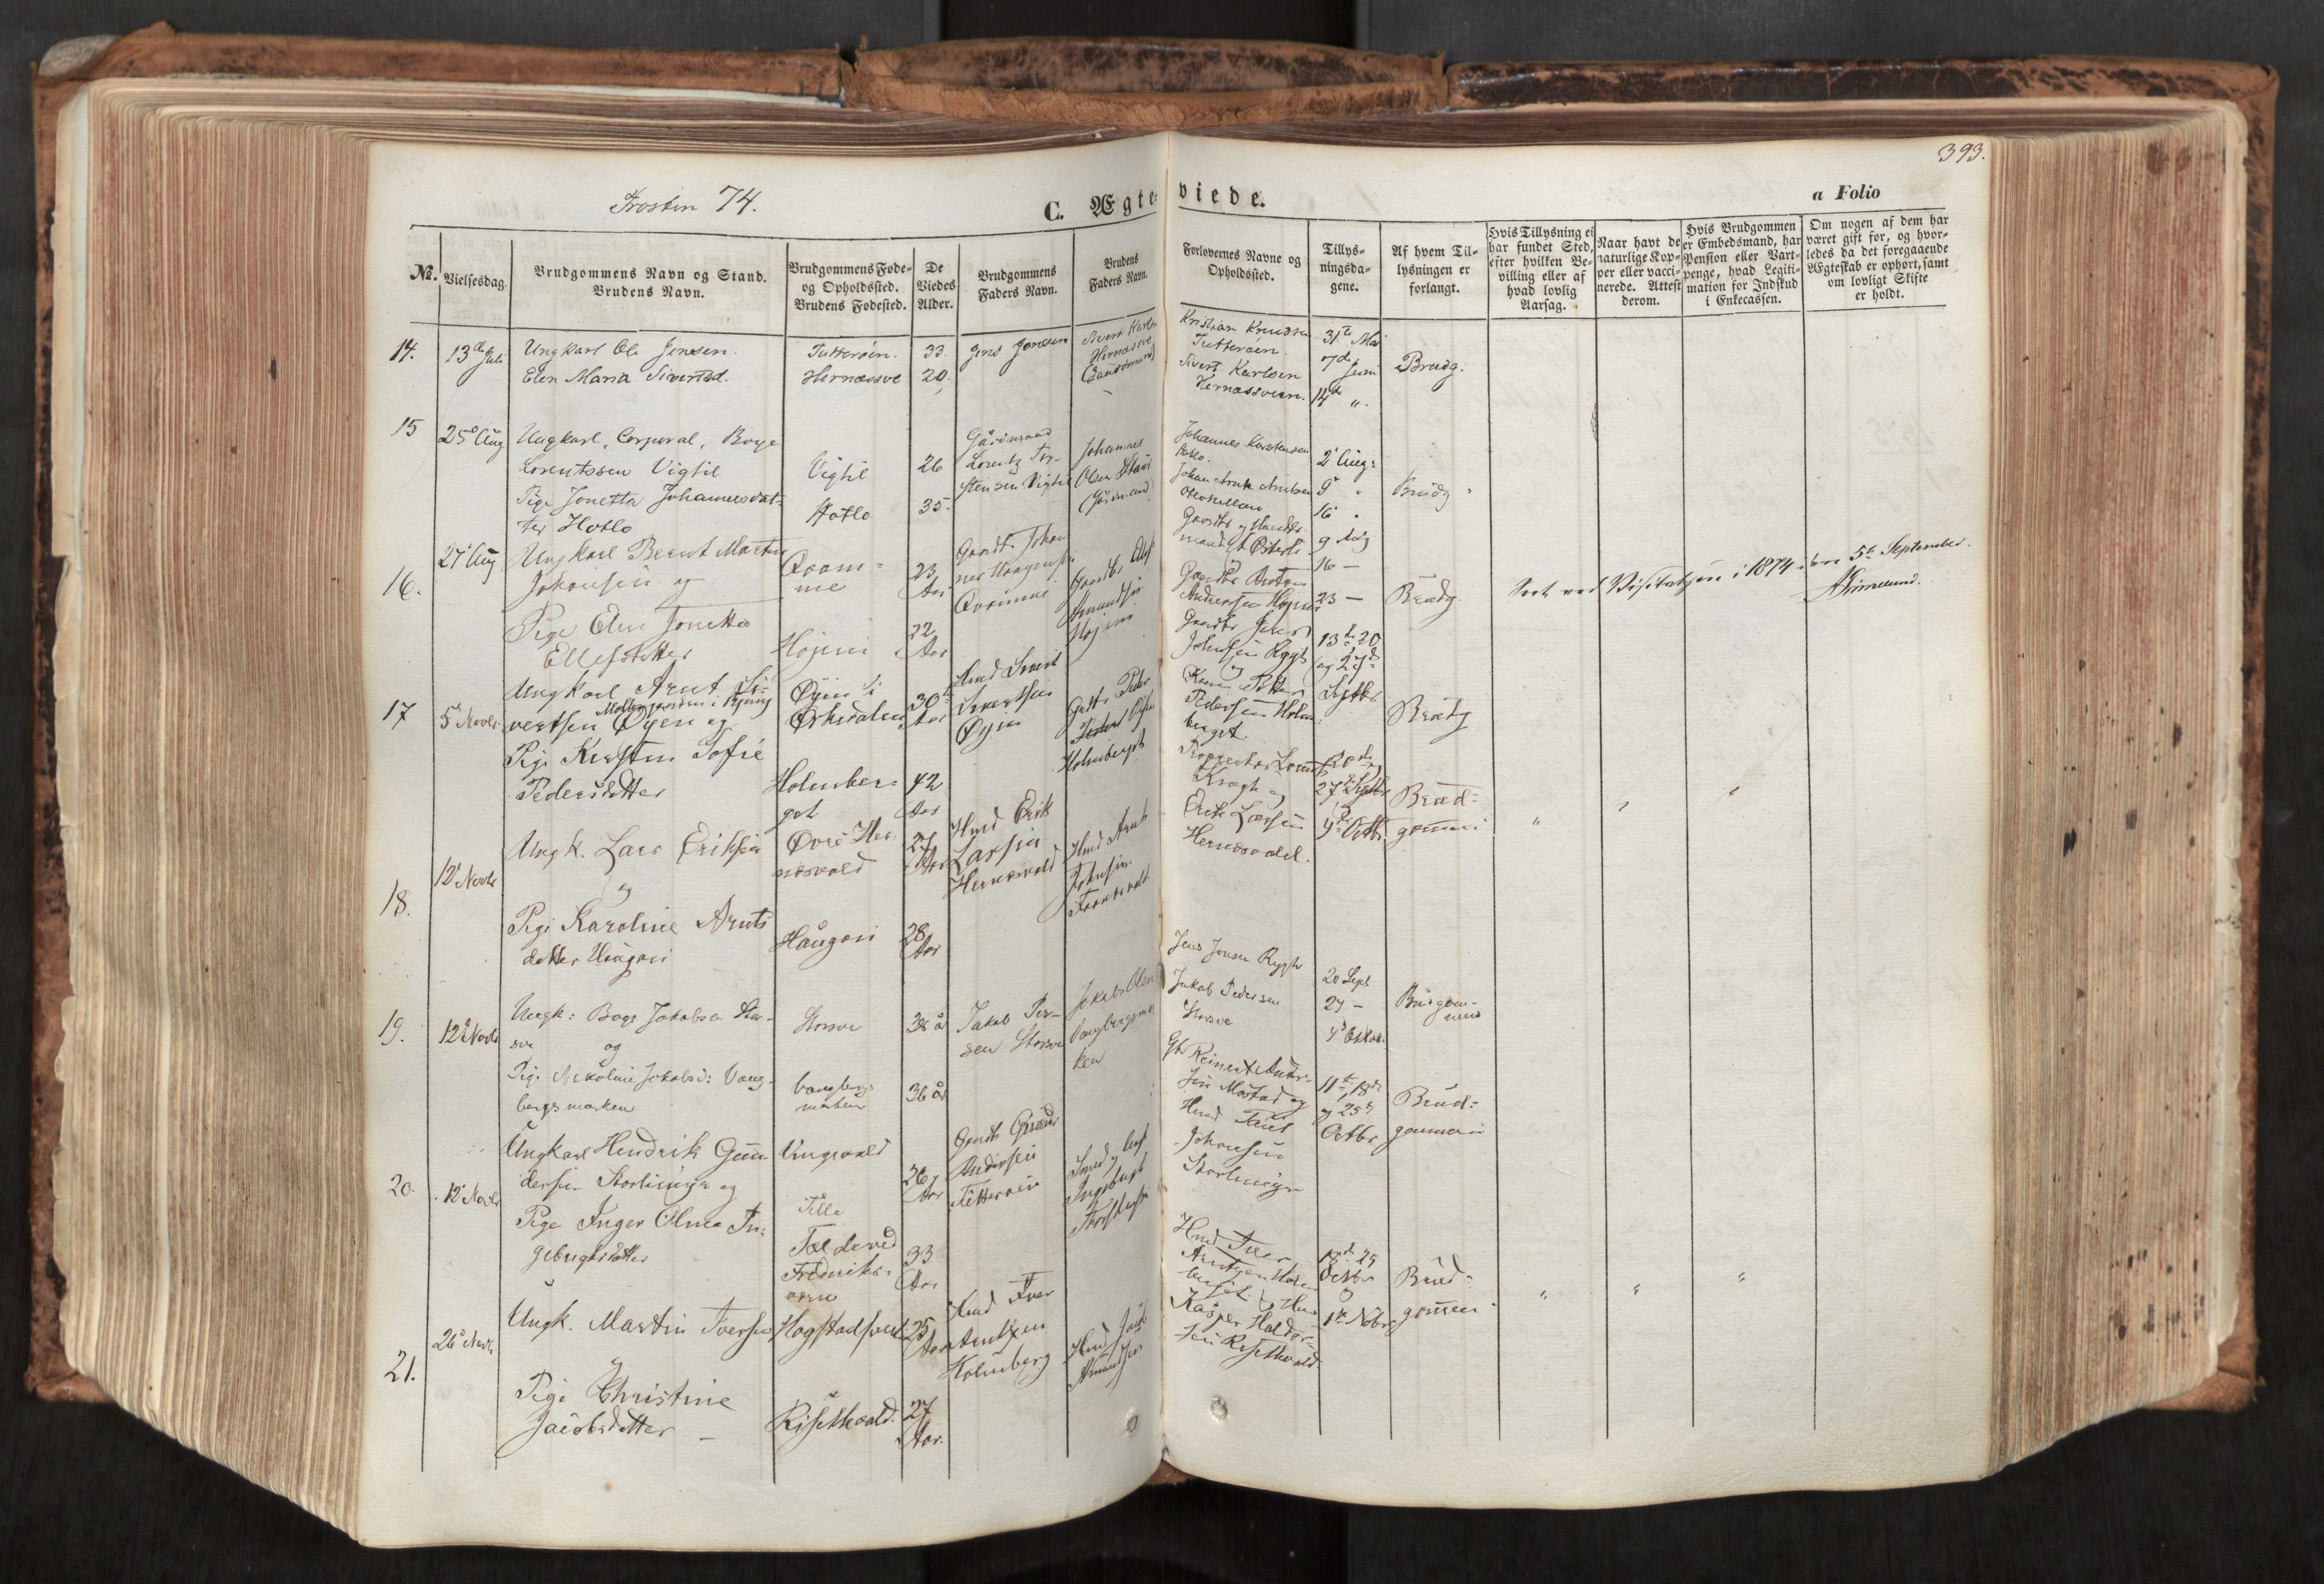 393.
Frosten 74.
C. Ægte-
viede.
a Folio
No.
Vielsesdag.
Brudgommens Navn og Stand.
Brudens Navn.
Brudgommens Føde-
og Opholdssted.
Brudens Fødested.
De
Viedes
Alder.
Brudgommens
Faders Navn.
Brudens
Faders Navn.
Forlovernes Navne og
Opholdssted.
Tillys-
ningsda-
gene.
Af hvem Til-
lysningen er
forlangt.
Hvis Tillysning ei
har fundet Sted,
efter hvilken Be-
villing eller af
hvad lovlig
Aarsag.
Naar havt de
naturlige Kop-
per eller vacci-
nerede. Attest
derom.
Hvis Brudgommen
er Embedsmand, har
Pension eller Vart-
penge, hvad Legiti-
mation for Indskud
i Enkecassen.
Om nogen af dem har
været gift før, og hvor-
ledes da det foregaaende
Ægteskab er ophørt, samt
om lovligt Skifte
er holdt.
14.
13de Juli
Ungkarl Ole Jensen.
Elen Maria Sivertsd.
Tutterøen.
Hernæsve
33.
20.
Jens Jonsen
Sivert Karls
Hernæsve
Kristian Knudsen
Tutterøen.
Sivert Karlsen
Hernæssveen.
31te Mai
7de Juni
14de "
Brudg.
15
25 Aug
Ungkarl, Corporal, Borge
Lorentssen Vigtil
Pige Jonetta Johannesdat-
ter Hotlo
Vigtil
Hotlo
26
35.
Gårdmand
Lorentz Tor-
stensen Vigtil
Johannes
Olsen
(Gårdmand)
Johannes Karstensen
Hotlo.
Johan Arnt Arntsen
2 Aug:
9 "
16 "
Brudg
16.
27 Aug
Ungkarl Bernt Martin
Johansen og
Pige Elen Jonetta
Ellefsdatter
Qvam-
me
Højem
23
Aar
22
Aar
Gaardb. Johan
Qvamme
Gaardbr. Ellef
Amundsen
Højem
Gaardbr og Handels
mand
Gaardbr Anton
Andersen Højem
9 Aug
16 —
23 —
Brudg.
Seet ved Visitatsen i 1874 den 5te September.
AGrimelund.
17
5 Novbr
Ungkarl Arnt Si-
vertsen Øyen og
Pige Kirsten Sofie
Pedersdatter
Øyen i
Ørkedalen
Holmber-
get
30
Aar
42
Aar
Hmd Sivert
Sivertsen
Øyen
Peder
Holmberget
Gaardbr Jens
Johnsen Rygh
og
Pedersen Holm-
berget.
13de 20
og 27de
Septbr
Brudg
18.
12 Novbr
Ungk. Lars Eriksen
og
Pige Karoline Arnts
datter Haugan
Øvre Her-
næsvald
Haugan
27
Aar
28
Aar
Hmd Erik
Larsen
Hernæsvald
Hmd Arnt
Johnsen
Proprietær Lorentz
Krogh og
Erik Larsen
Hernæsvald.
20de og
27de Septbr
4de Octbr
Brud-
gommen
"
"
"
19.
12 Novbr
Ungk: Borge Jakobsen Stor-
sve og
Pige Nikoline Jokabsd: Vang-
bergsmarken
Storsve
Vangbergs
marken
38 år
36 år
Jakob Per-
sen Storsve
Jakob Olsen
Vangbergsmar
ken
Jens Jonsen Rygh
Jakob Pedersen
Storsve
20 Sept
27 —
4 Oktbr.
Brudgom-
men
20.
12 Novbr
Ungkarl Hendrik Gun-
dersen Storlingen og
Pige Inger Oline In-
gebrigtsdatter
Vingsvald
Frederiks-
værn
26
Aar
33
Aar
Andersen
Gb Reinert Ander-
sen Møstad og
Hmd
Johansen
11te, 18de
og 25de
Octbr
Brud-
gommen
21.
26 Novbr
Ungk. Martin Iversen
og
Pige Christine
Jacobsdatter —
Hogstadsveet
Risethvald.
25
Aar
27
Aar.
Hmd Iver
Arntzen
Holmberg
Hmd Jacob
Amundsen
Hmd Iver
Arntzen Holm-
berget og Hmd
Kasper Haldor-
sen Risethvald
18de 25
Octbr
og
1te Novbr
Brud-
gommen
"
"
"